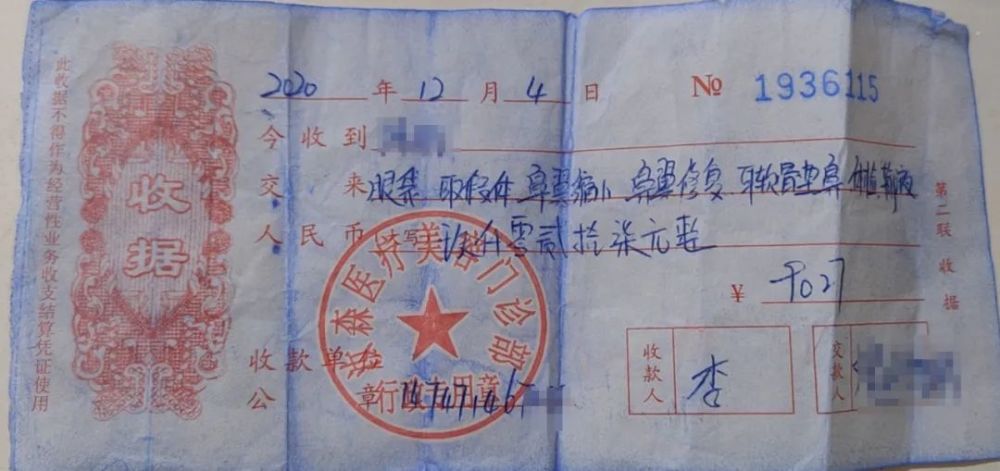 此收据不得作为经营性业务收支结算凭证使用
收据
2020 年 12 月 4 日 № 1936115
今收到
交来眼袋 取假体 鼻翼缩小 鼻翼修复 耳软骨垫鼻
人民币 仟零贰拾柒元
¥ 9027
森医疗美容门诊部
收款单位
公章
行政专用章
收款人 李
交款人
第二联 收据